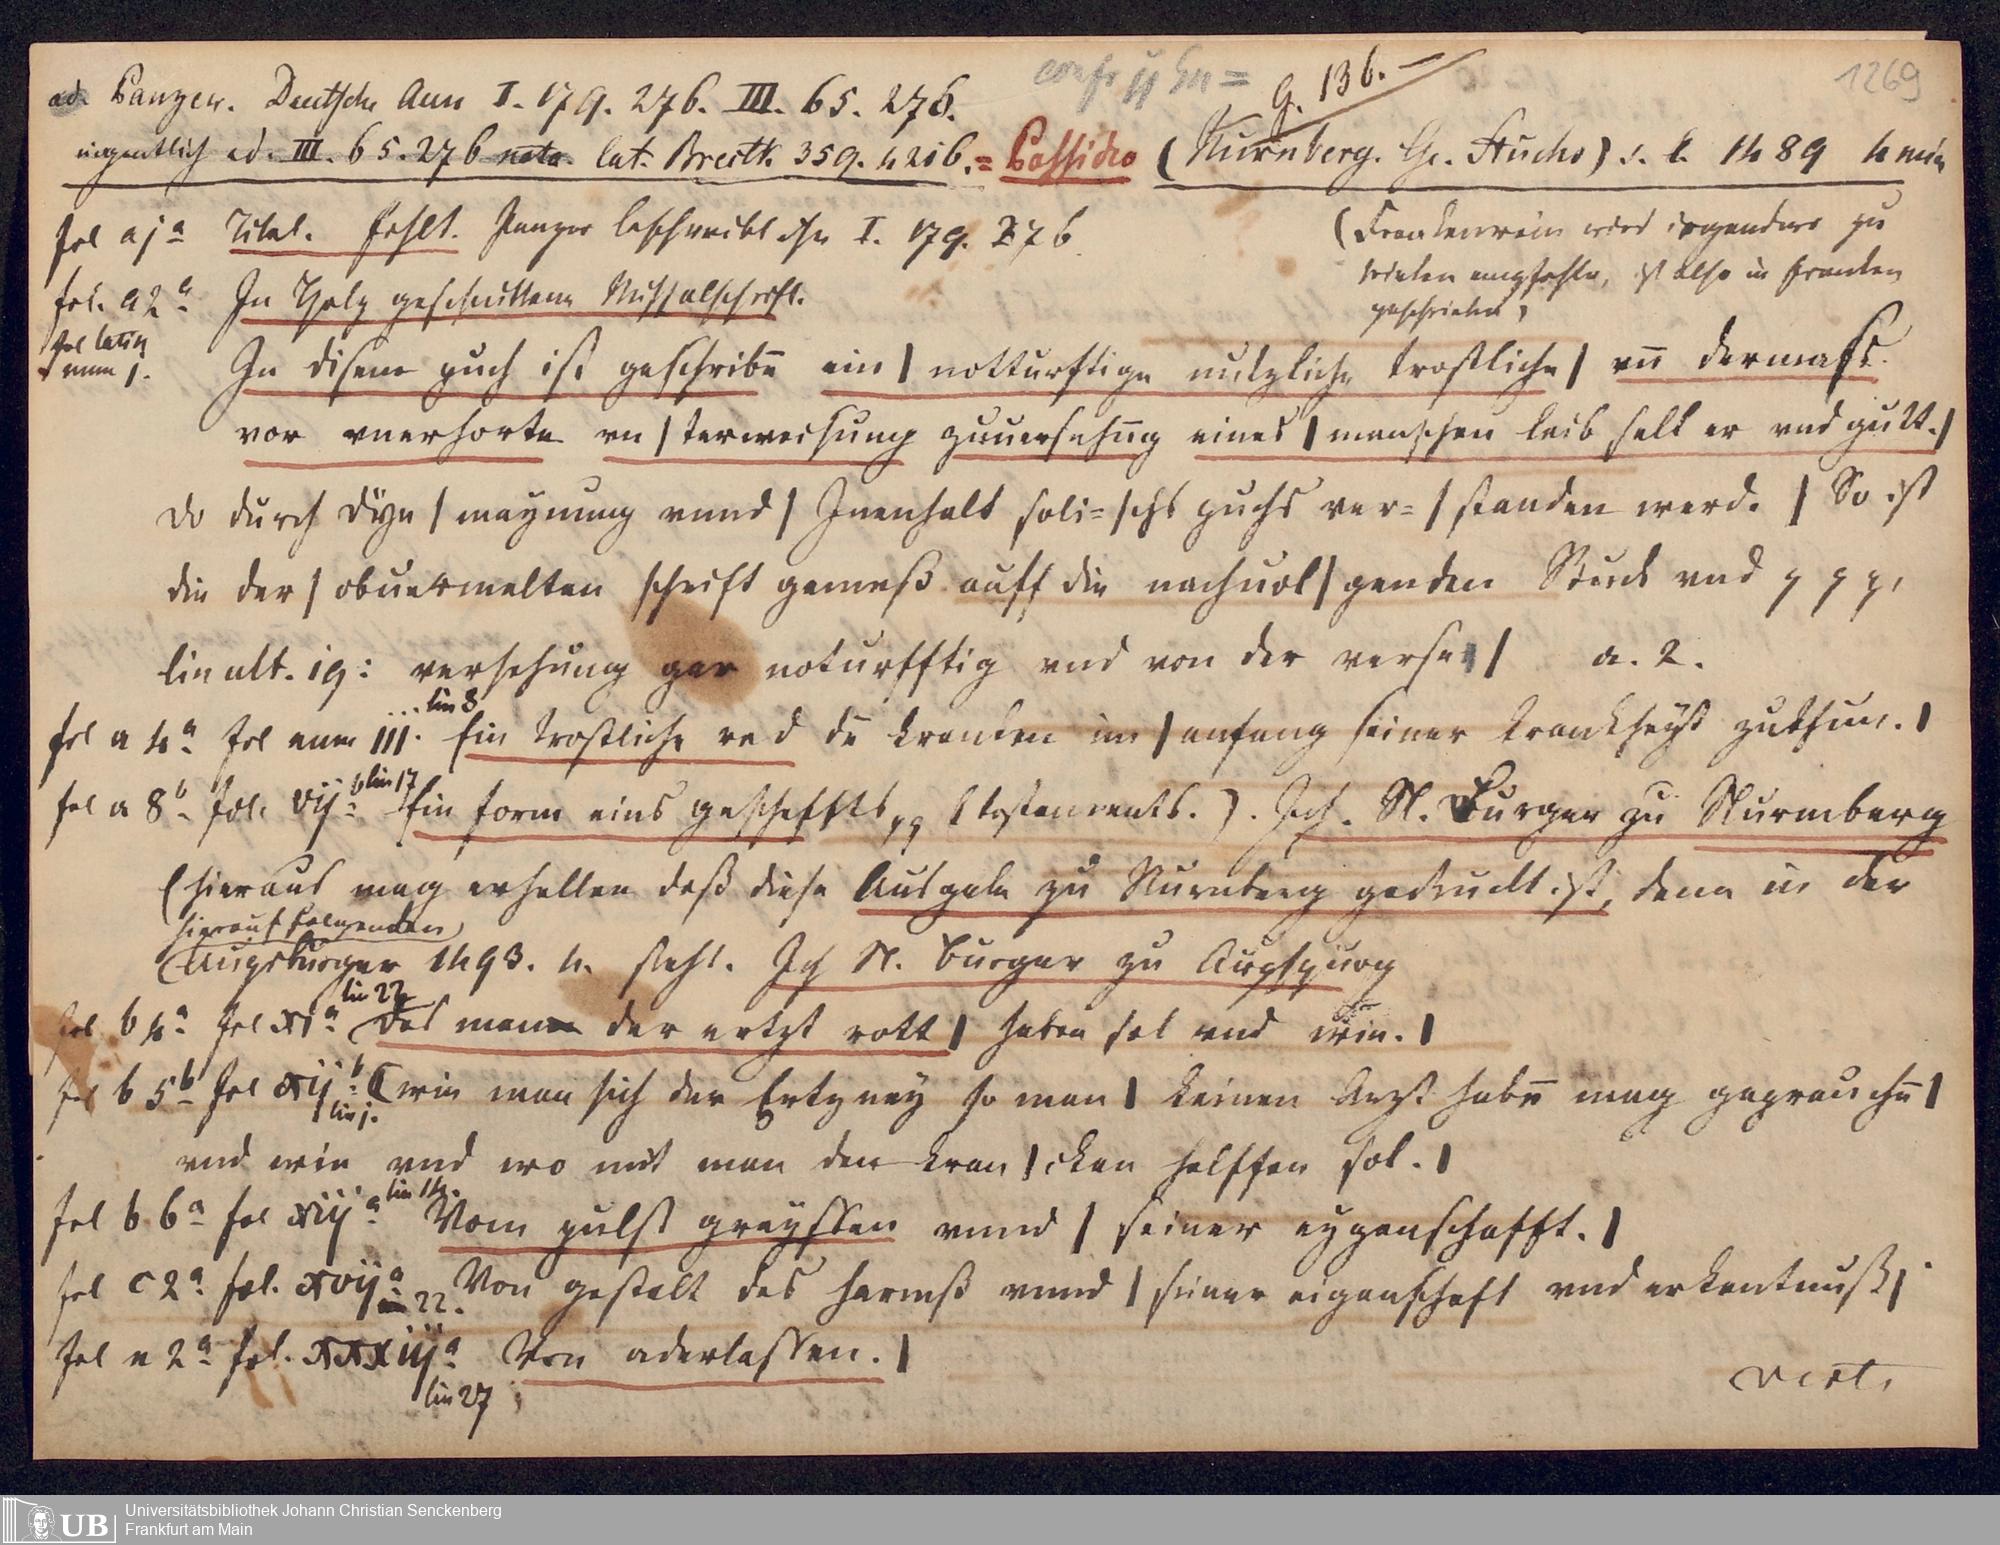 1269
G. 136.
ad. Panzer. Deutsche Ann I. 179. 276. III. 65. 276.
eigentlich ad. III. 65. 276 nota. lat. 359. 4216. = (Nürnberg. Ge. Stuchs) s. l. 1489 4 min
fol aja Titel. fehlt. Panzer beschreibt ihn I. 179. 276
(Frankenwein wird irgendwo zu
trinken empfohlen, ist also in Franken
geschrieben)
fol. a2a In Holz geschnittene Missalschrift.
fol latin
num j.
In disem puch ist geschribē ein | notturftige nutzliche trostliche | vn̄ dermass
vor vnerhorte vn | terweisung zuuersehūg eines | menschen leib selt er vnd gutt. |
do durch dÿe | maynung vnnd | Inenhalt soli= | chs puchs ver= | standen werd. | So ist
die der | obuermelten schrift gemeß auff die nachuol | genden Stuck vnd
lin ult. ig: versehung gar noturfftig vnd von der verse | a. 2.
lin 8
fol a 4a fol num III. Ein trostliche red dē krancken im | anfang seiner kranckheyt zuthun. |
fol a 8b fol. vij b lin 17 Ein form eins gescheffts, (testaments.). Ich. N. Burger zu Nurmberg
(hieraus mag erhellen daß diese Ausgabe zu Nurnberg gedruckt ist, denn in der
hierauf folgenden
Augsburger 1493. 4. steht. Ich N. burger zu Augspurg
fol b 4a fol xi a lin 22 Das man der ertzt rott | haben sol vnd wie. |
fol b 5b fol xij b lin j. wie man sich der Ertzney so man | keinen Arzt habē mag geprauchē |
vnd wie vnd wo mit man den kran | cken helffen sol. |
fol b 6a fol xiij a lin 14. Vom pulst greyffen vnnd | seiner eygenschafft. |
fol c 2a fol. xvij a 22. Von gestalt des harnß vnnd | seiner eigenschaft vnd erkentnuß |
fol e 2a fol. xxxiij a lin 27 Von aderlassen. |
vert.
UB
Universitätsbibliothek Johann Christian Senckenberg
Frankfurt am Main